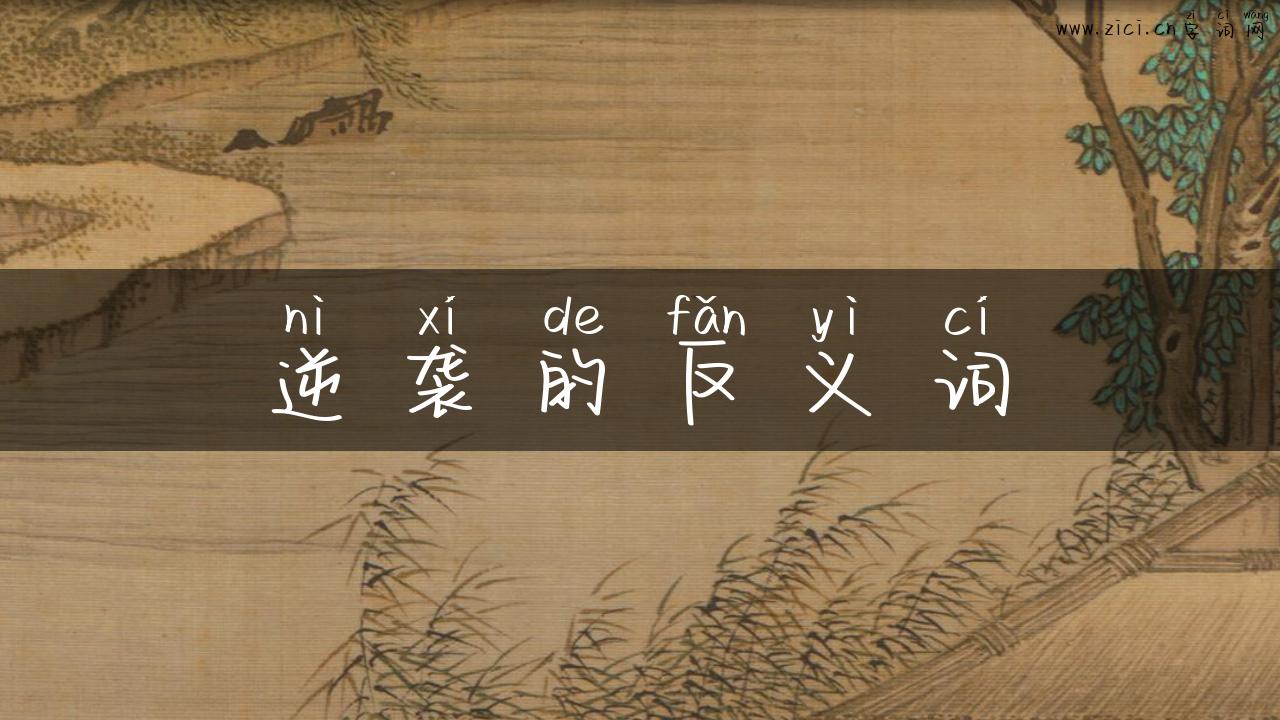 zì cí wǎng
www.zici.cn字词网
nì xí de fǎn yì cí
逆袭的反义词